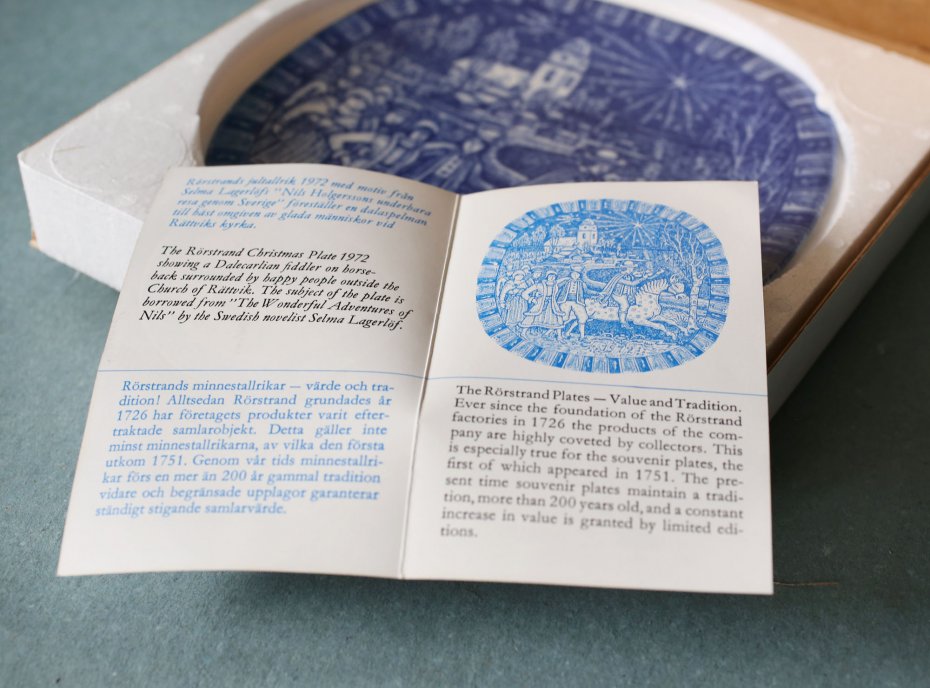 Rörstrands jultallrik 1972 med motiv från
Selma Lagerlöfs "Nils Holgerssons underbara
resa genom Sverige" föreställer en dalaspelman
till häst omgiven av glada människor vid
Rättviks kyrka.
The Rörstrand Christmas Plate 1972
showing a Dalecarlian fiddler on horse-
back surrounded by happy people outside the
Church of Rättvik. The subject of the plate is
borrowed from "The Wonderful Adventures of
Nils" by the Swedish novelist Selma Lagerlöf.
Rörstrands minnestallrikar — värde och tra-
dition! Alltsedan Rörstrand grundades år
1726 har företagets produkter varit efter-
traktade samlarobjekt. Detta gäller inte
minst minnestallrikarna, av vilka den första
utkom 1751. Genom vår tids minnestallri-
kar förs en mer än 200 år gammal tradition
vidare och begränsade upplagor garanterar
ständigt stigande samlarvärde.
The Rörstrand Plates — Value and Tradition.
Ever since the foundation of the Rörstrand
factories in 1726 the products of the com-
pany are highly coveted by collectors. This
is especially true for the souvenir plates, the
first of which appeared in 1751. The pre-
sent time souvenir plates maintain a tradi-
tion, more than 200 years old, and a constant
increase in value is granted by limited edi-
tions.